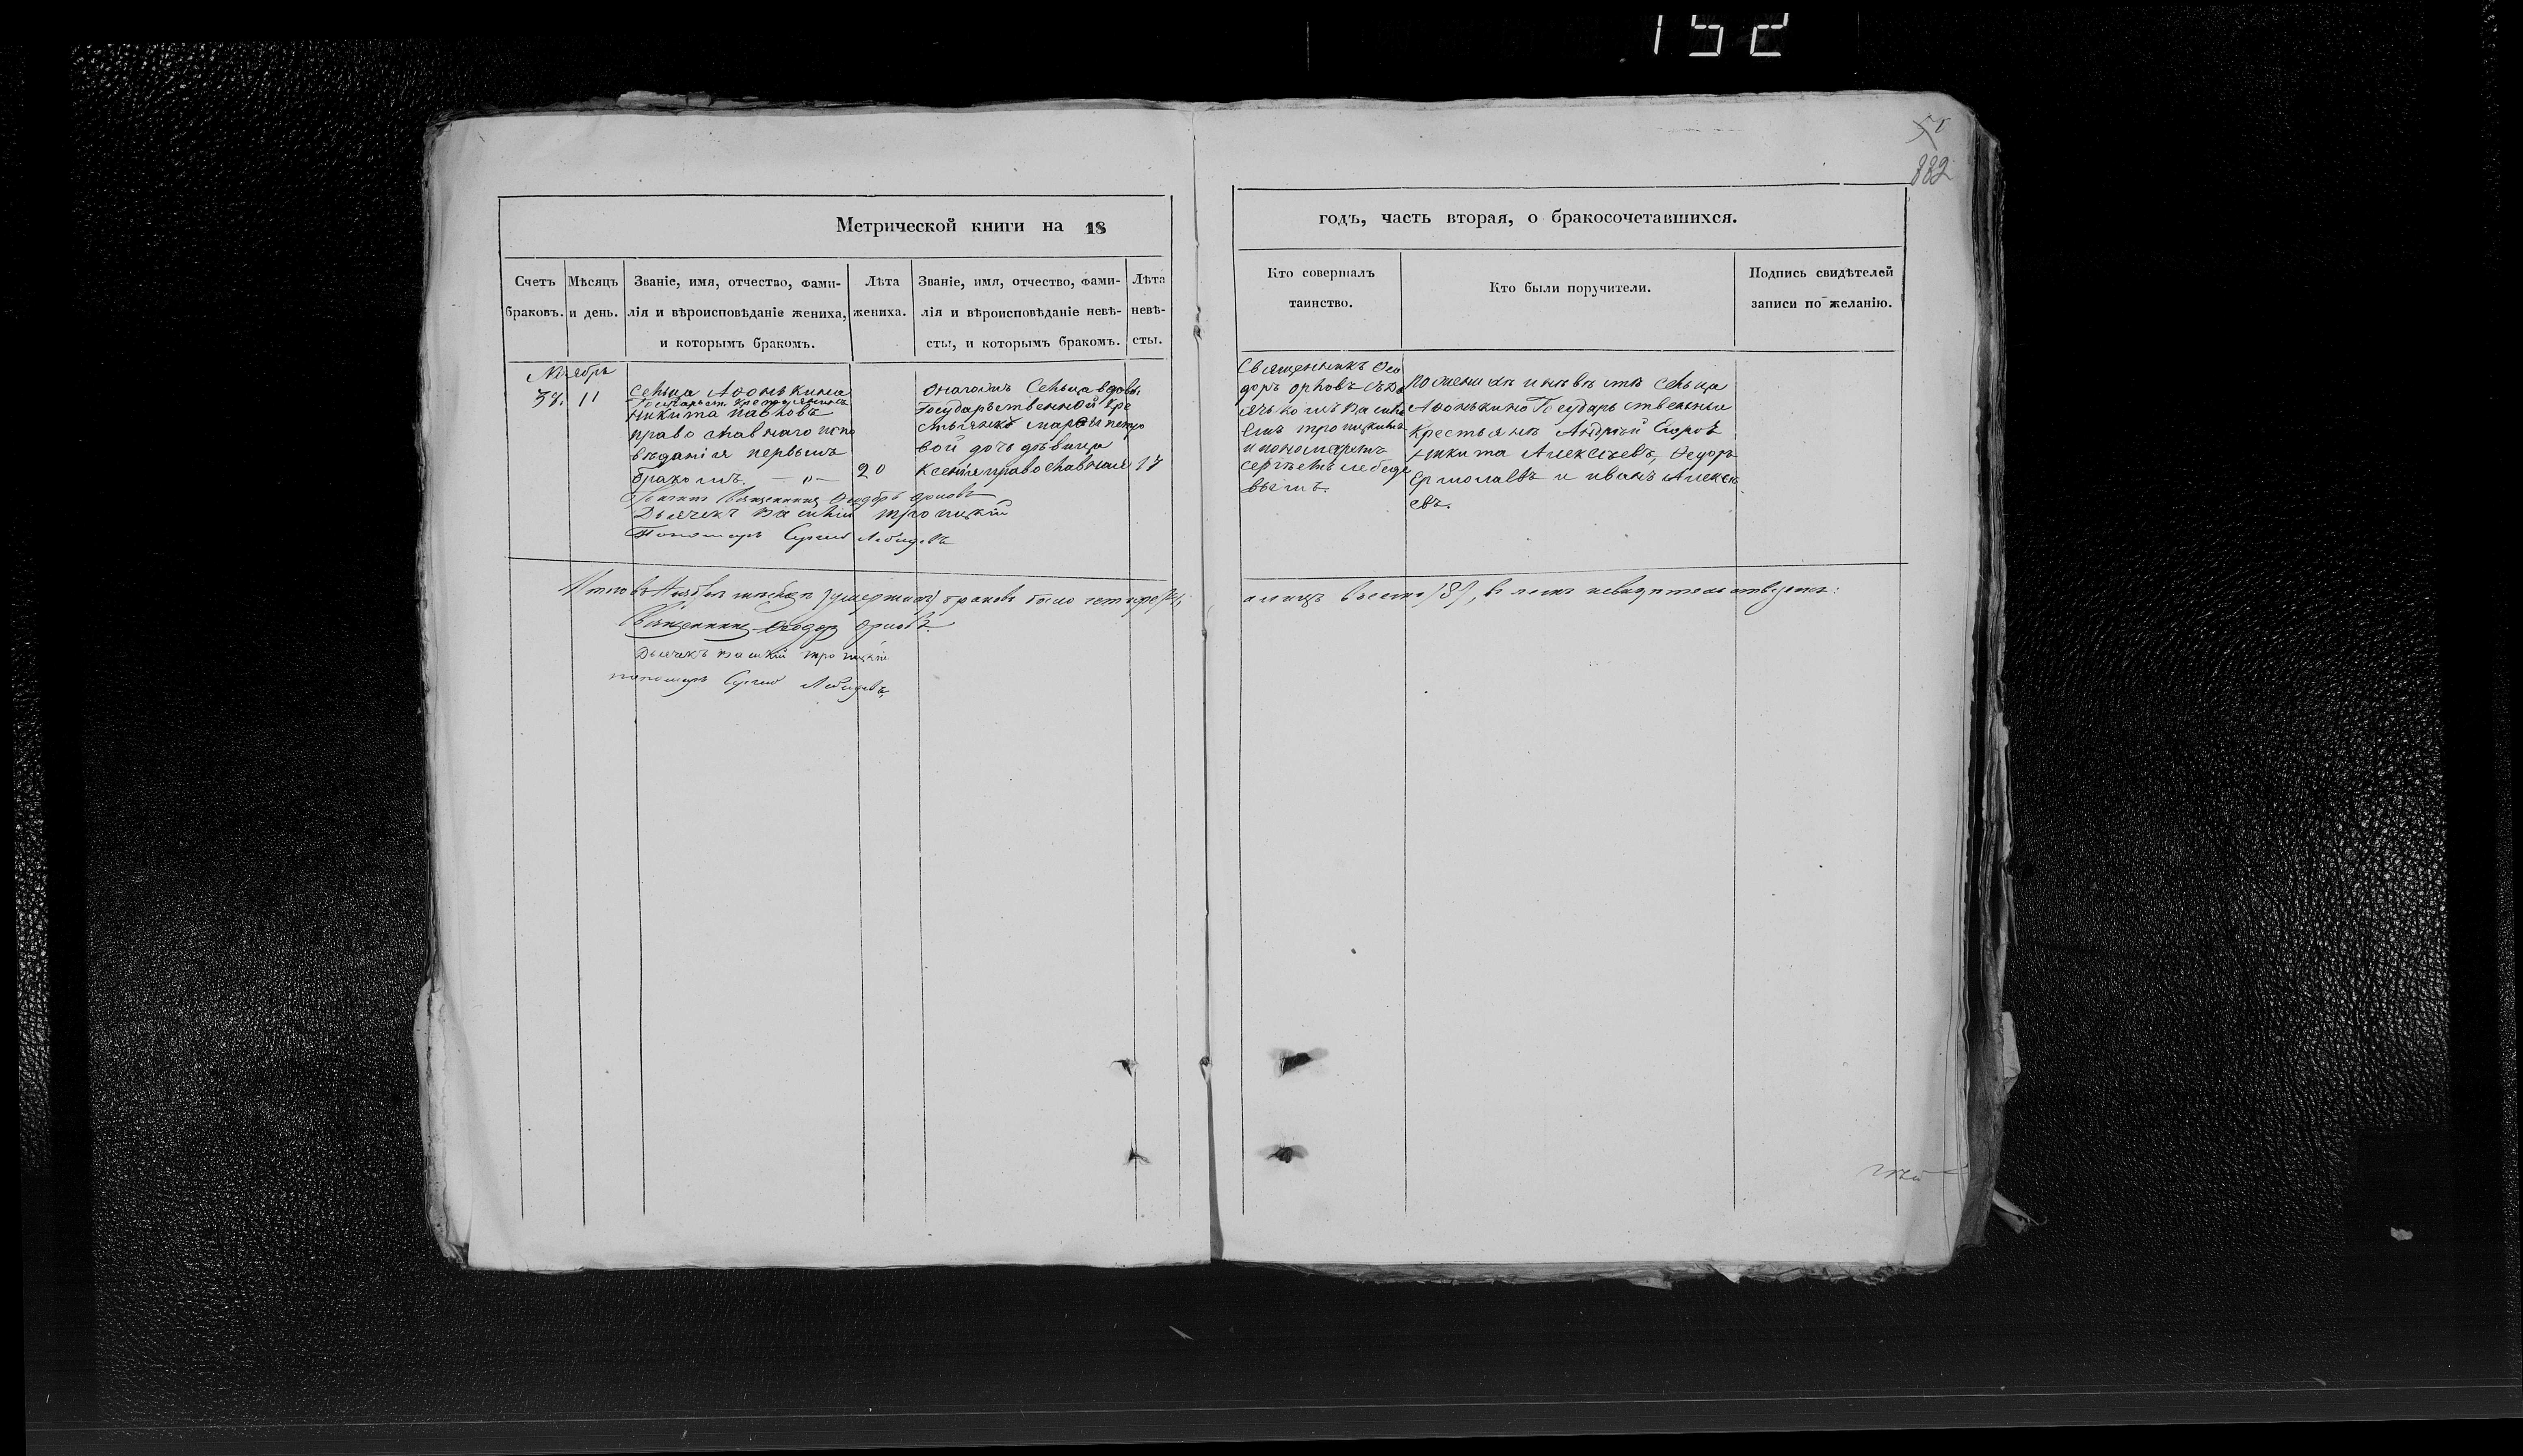 152
51
882
Метрической книги на 18
годъ, часть вторая, о бракосочетавшихся.
Счетъ браковъ.
Мѣсяцъ и день.
Званіе, имя, отчество, фами-
лія и вѣроисповѣданіе жениха,
и которымъ бракомъ.
Лѣта
жениха.
Званіе, имя, отчество, фами-
лія и вѣроисповѣданіе невѣ-
сты, и которымъ бракомъ.
Лѣта
невѣ-
сты.
Кто совершалъ
таинство.
Кто были поручители.
Подпись свидѣтелей
записи по желанію.
Ноябрь
34. 11
Сельца Афонькина
Государств. крестьянинъ
Никита Павловъ
православнаго испо
вѣданія первымъ
бракомъ.
20
Онагожъ Сельца вдовы
Государственной кре
стьянки Марѳы петро
вой дочь дѣвица
Ксенія православная
17
Священникъ Ѳео
доръ Орловъ съ дь
ячькомъ Васильи
емъ Троицкимъ
и пономаремъ
Сергѣемъ Лебеде
вымъ.
По женихѣ и невѣстѣ сельца
Афонькино Государственныи
крестьяне Андрѣй
Никита Алексѣевъ, Ѳедоръ
Ермолаевъ и Иванъ Алексѣ
евъ.
Священникъ Ѳеодоръ Орловъ
Дьячекъ Василій Троицкій
Пономарь Сергій Лебедевъ
Итого въ Ноябрѣ браковъ было четыре /4/,
а лицъ восемь /8/, въ чемъ
Священникъ Ѳеодоръ Орловъ.
Дьячекъ Василій Троицкій
пономарь Сергій Лебедевъ